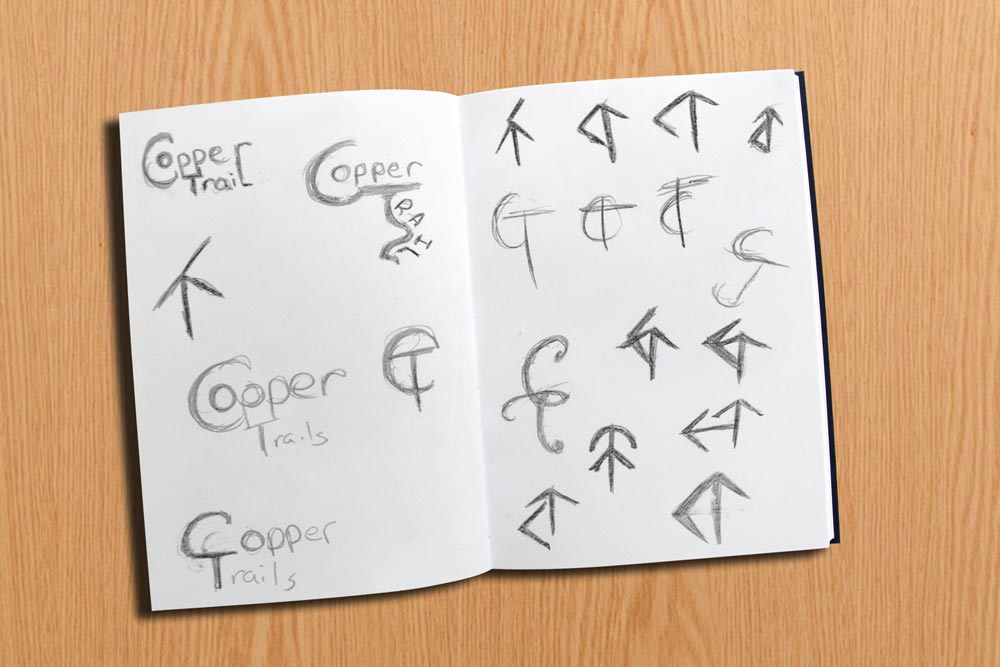 Copper
Trail
Copper
TRAIL
Copper
Trails
Copper
Trails